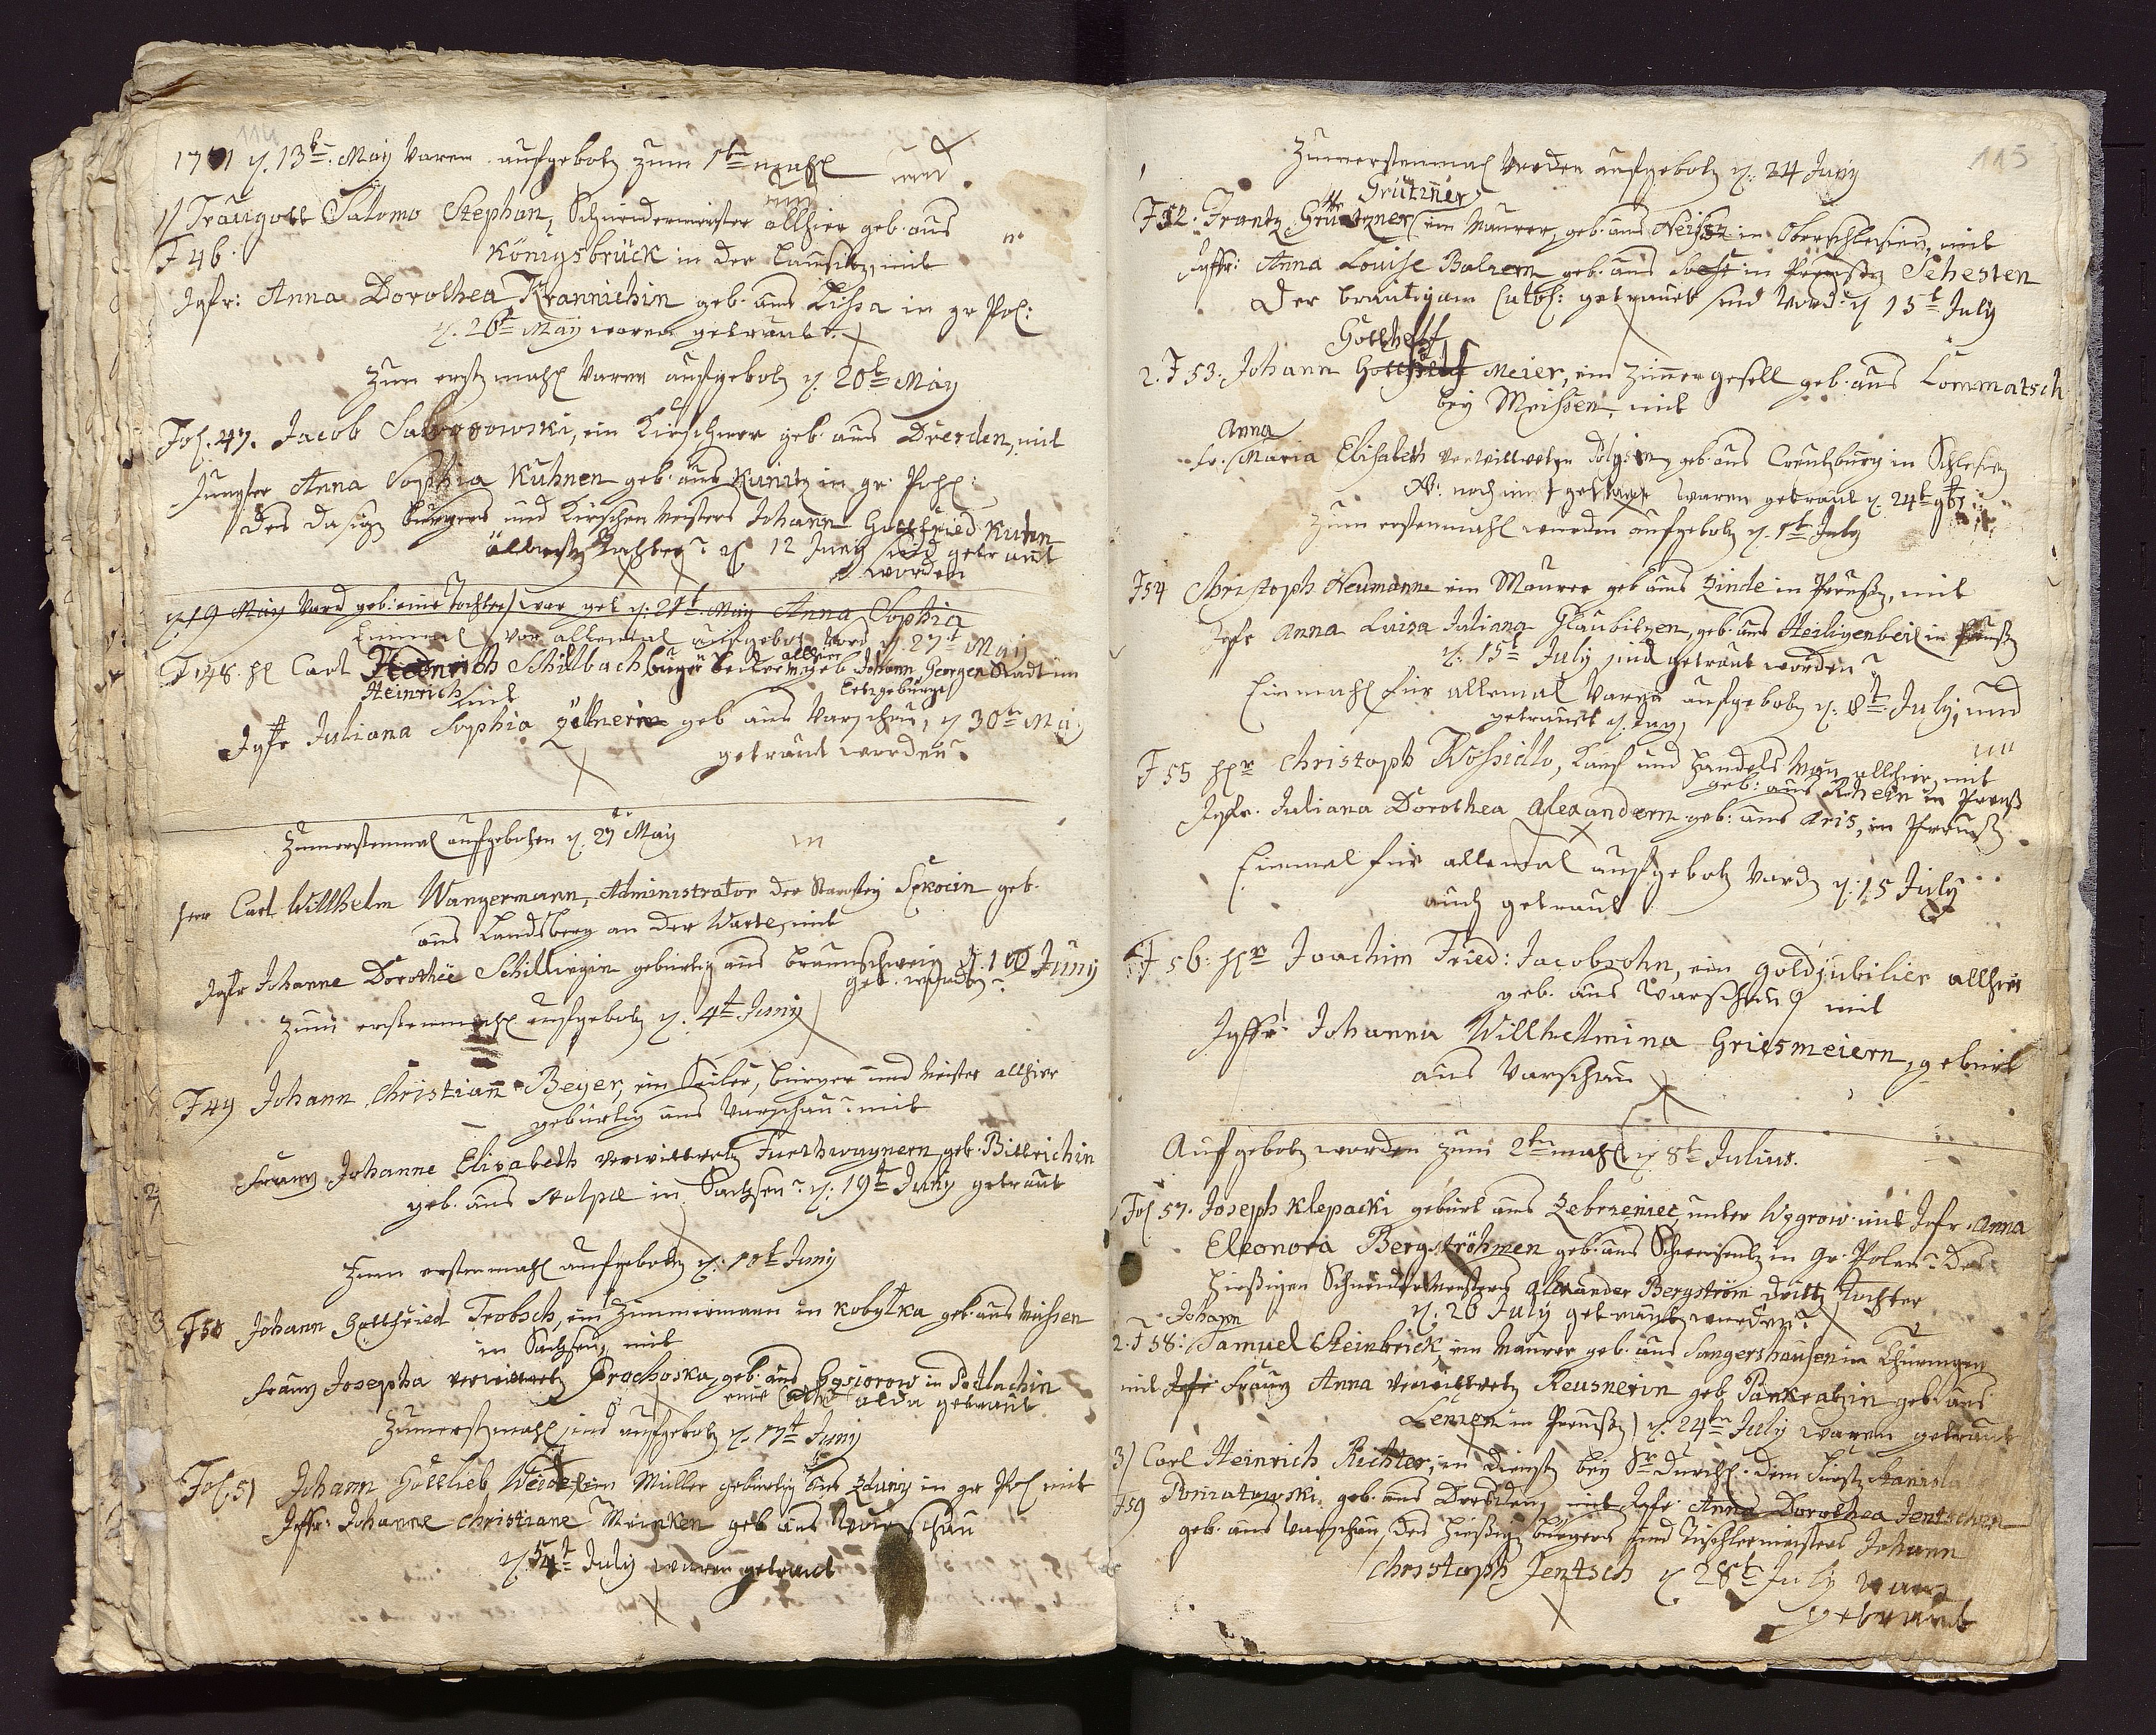 114
17 1 d. 13t. May waren aufgeboth zum 1ten mahl und
1/ Traugott Salomo Stephan, Schneidermeister allhier geb. aus
F 46. Königsbrück in der Lausitz, mit
Jgfr: Anna Dorothea Krannichin geb. aus Lissa in gr Pol:
d. 26t May waren getraut.
Zum erst mahl waren aufgeboth d. 20t May
Fol. 47. Jacob Saborowski, ein Kirschner geb. aus Dresden, mit
Jungfer Anna Sophia Kuhnen geb. aus Kunitz in gr. Pohl:
des dasig Bürgers und Kirschen Meisters Johann Gottfried Kuhn
ältesten Tochter d 12 Juny sind getraut
worden
d. 19 May ward geb: eine Tochter, war get d: 21t. May Anna Sophia
Einmal vor allemal aufgeboth word d. 27t May
F 48. H Carl Schilbach bürger allhier geb Johann Georgen Stadt im
Heinrich mit Ertzgebürge
Jgfr Juliana Sophia Zöllnerin geb aus Warschau, d 30t May
getraut worden
Zumerstenmal aufgebothen d. 27t May
Herr Carl Willhelm Wangermann, Administrator der Starostey geb.
aus Landsberg an der Warte, mit
Jgfr Johanne Dorothée Schillingin gebürtig aus Braunschweig d. 10 Juny
get. worden
Zum erstenmahl aufgeboth d. 4t Juny
F 49 Johann Christiann Beyer, ein Seiler, bürger und Meister allhier
gebürtig aus Warschau mit
Frauen Johanne Elisabeth verwittwete Fuerthwagnern geb. Bittrichin
geb. aus Stolpe in Sachsen d. 19t Juny getraut
Zum erstenmahl aufgeboth d: 10t Juny
F 50 Johann Gottfried Trobsch, ein Zimmermann in Kobyłka geb. aus Meissen
in Sachsen, mit
Frauen Josepha verwittwete Prochoska, geb. aus Gąsiorow in Podlachin
alda getraut
Zumerst mahl sind aufgeboth d. 17t Juny
Fol. 51 Johann Gottlieb ein Müller gebürtig aus Zduny in gr Pol mit
Jgfr: Johanne Christiane Meinken geb aus Warschau
July waren getraut
115
Zumerstenmal werden aufgeboth d: 24 Juny
Grützner
F 52. Frantz Grützner ein Maurer, geb. aus Neisse in Oberschlesien, mit
Jgffr: Anna Louise Balzern geb. aus in Preussen Sehesten
Der Bräutigam Cathl: getrauet sind word: d 15t July
Gotthelf
2. F 53. Johann Meier, ein Zimmergesell geb. aus Lommatsch
bey Meissen, mit
Anna
Fr. Maria Elisabeth verwittwete geb. aus Creutzburg in Schlesien
waren getraut d. 24t
Zum erstenmahl wurden aufgeboth d. 1t July
F 54 Christoph Neumann ein Maurer geb. aus Zinde in Preuss, mit
Jgfr Anna Luisa Juliana Glaubitzen, geb. aus Heiligenbeil in Preuss
d: 15t July sind getraut worden
Einmahl für allemal waren aufgeboth d: 8t July, und
getrauet d. eay
F 55 Hr Christoph Wossidlo, Kauf und Handels Man allhier, mit
geb: aus Rhein in Preuss
Jgfr. Juliana Dorothea Alexandern geb: aus Aris, in Preuss
Einmal für allemal aufgeboth ward d: 15 July
auch getraut
F 56: Hr Joachim Fried: Jacobsohn, ein Goldjubilier allhier
geb. aus Warschau mit
Jgffr: Johanna Willhelmina Griesmeiern, gebürt
aus Warschau
Aufgeboth worden zum 2ten mahl d 8t Julius.
Fol 57. Joseph Klepacki gebürt aus Zebrzeniec, unter Węgrow mit Jgfr. Anna
Eleonora Bergströhmen geb. aus Schwersentz in Gr. Polen des
hiesigen Schneidermeisters Alexander Bergström dritte Tochter
d: 26 July getraut worden
Johann
2. F 58: Samuel Steinbrick, ein Maurer geb. aus Sangershausen in Thüringen
mit Jgfr Frauen Anna verwittwete Reusnerin geb. Pankratzin geb. aus
Lenzen in Preuss d. 24ten July waren getraut
3) Carl Heinrich Richter, in Dienst bey Sr Durchl. dem Fürst Stanisla
F 59 Poniatowski, geb. aus Dresden, mit Jgfr. Anna Dorothea Jentschen
geb. aus Warschau, des hiesig bürgers und Tischlermeisters Johann
Christoph Jentsch d 28t July waren
getraut